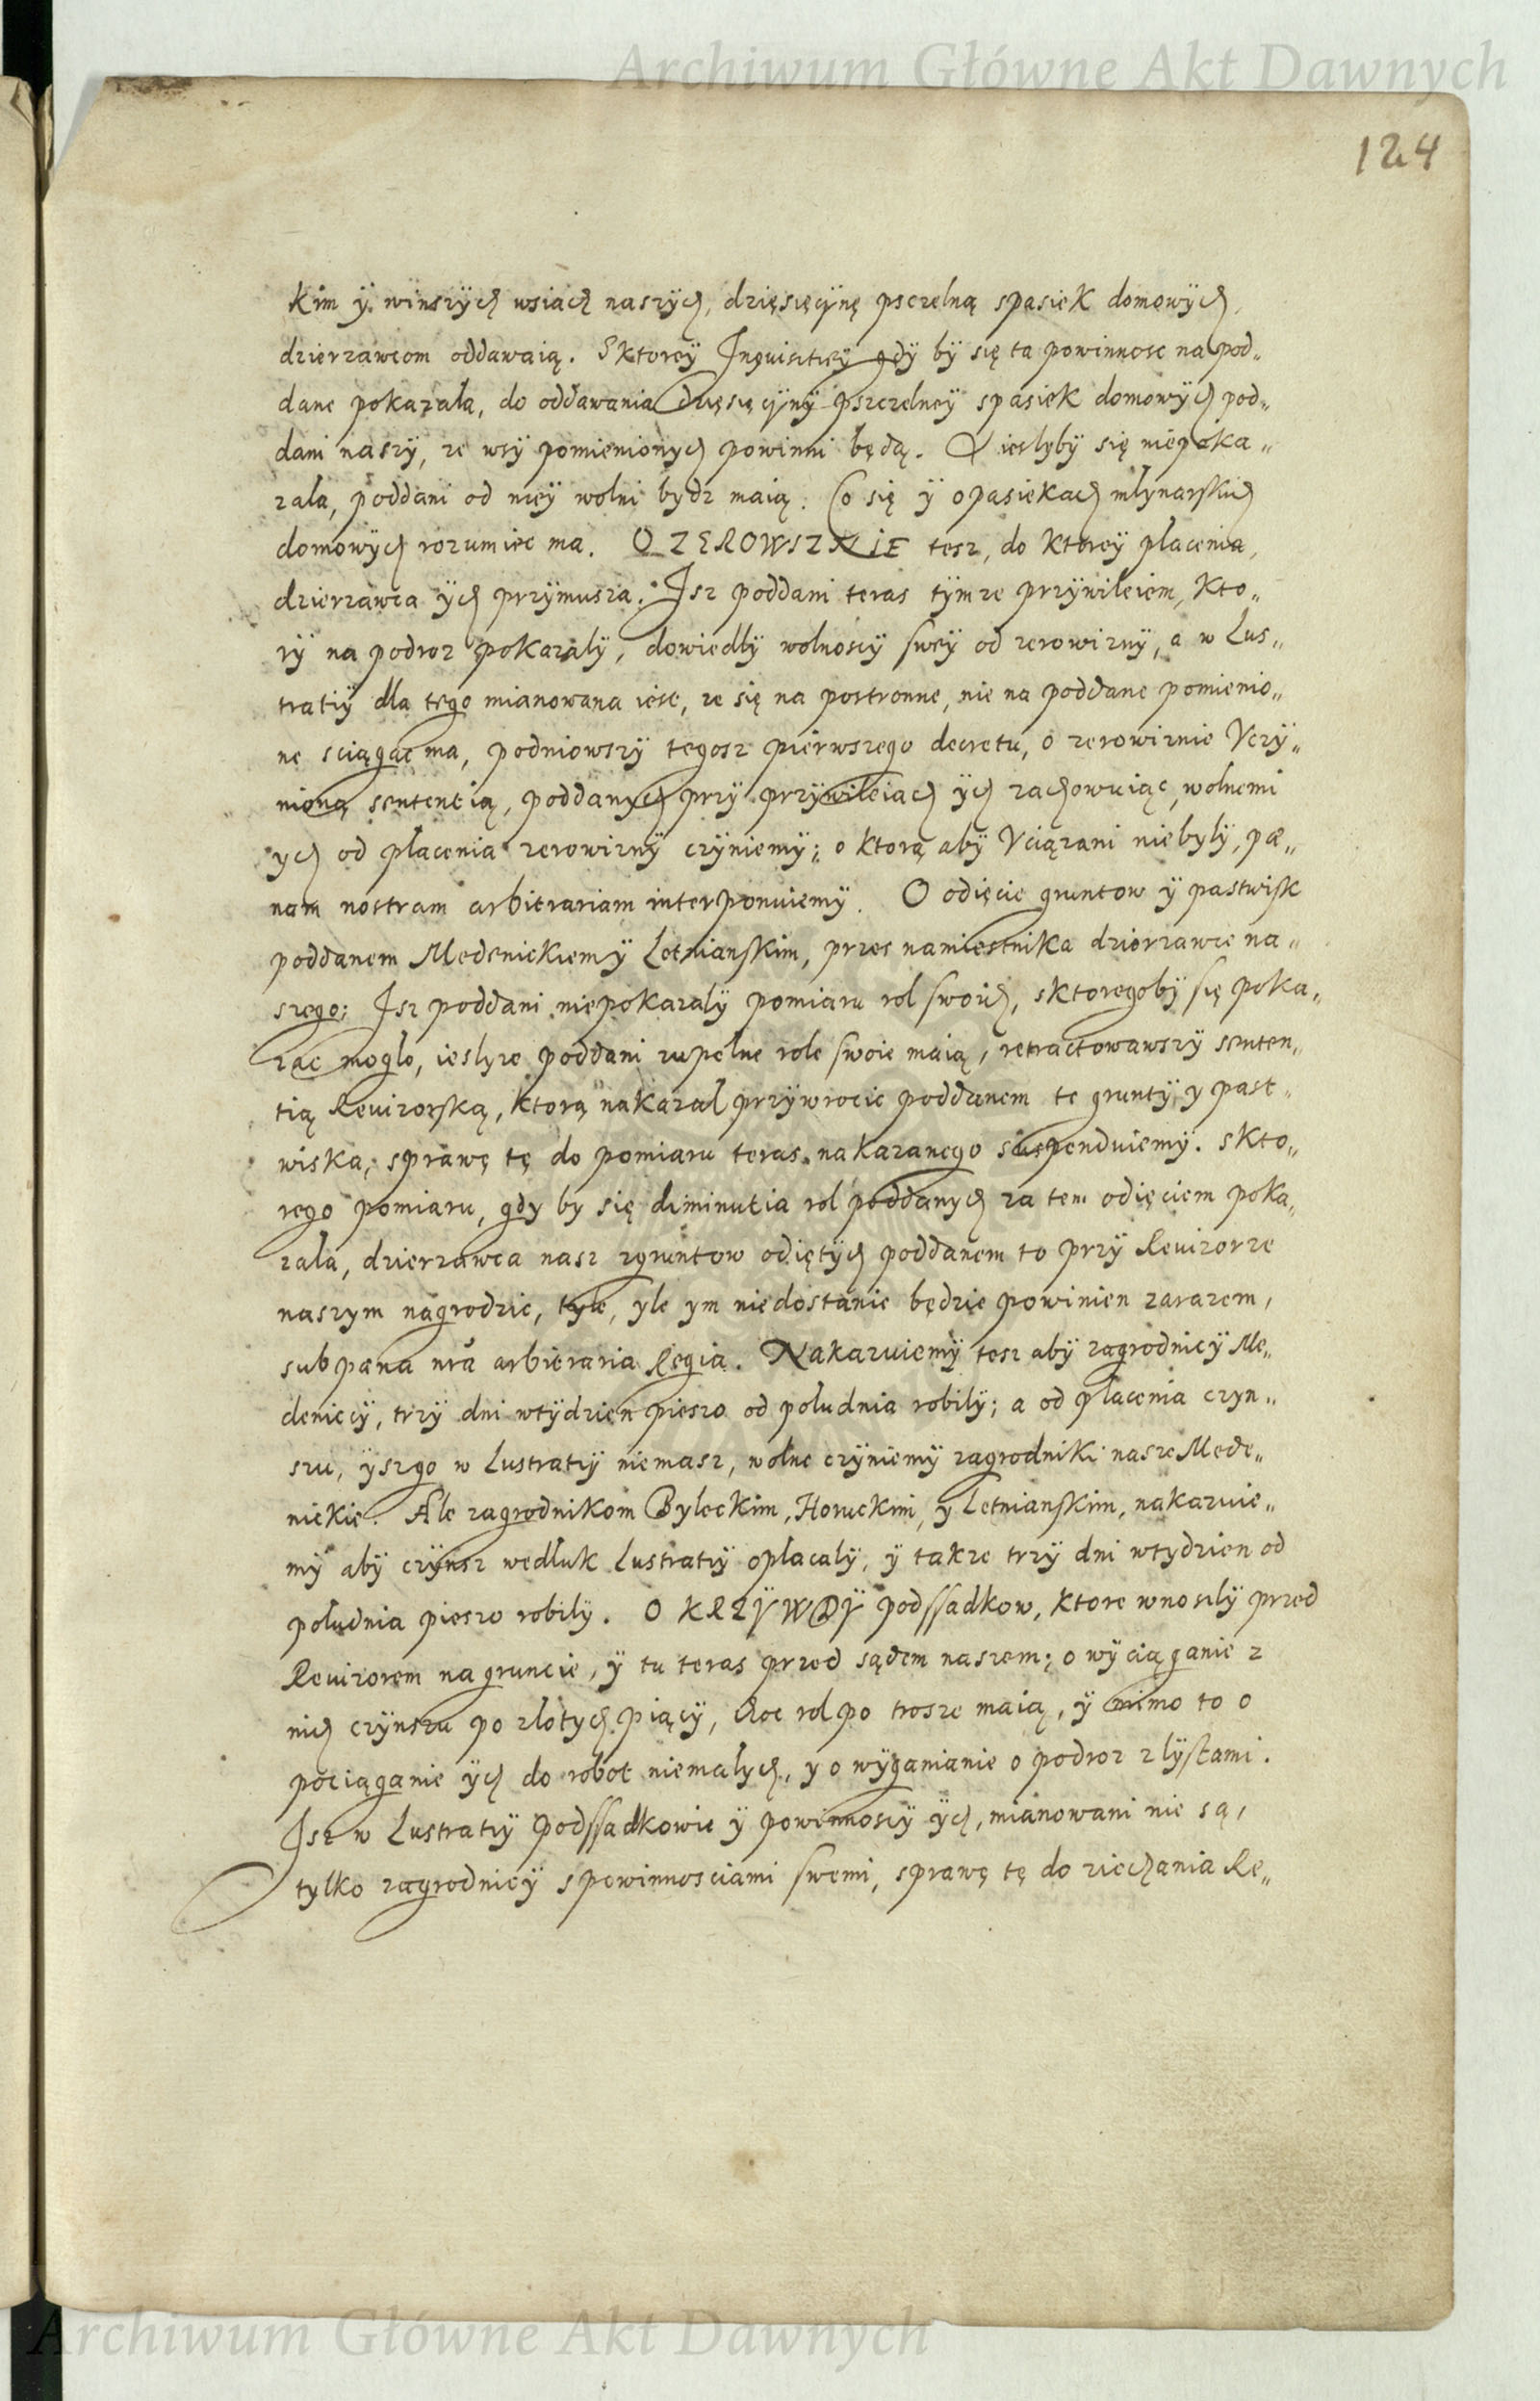 Archiwum Główne Akt Dawnych
124
kim ÿ winszÿch wsiach naszÿch, dzięsięcÿnę pszczelną spasiek domowÿch,
dzierzawcom oddawaią. Sktoreÿ Inquisitieÿ gdÿ bÿ się ta powinnosc na pod„
dane pokazała, do oddawania dzięsięcÿnÿ pszczelneÿ spasiek domowÿch pod„
dani naszÿ, ze wsÿ pomienionÿch powinni będą. A ieslyby się niepoka„
zala, poddani od nieÿ wolni bydz maią. Co się ÿ opasiekach młynarskich
domowÿch rozumiec ma. O ZEROWSZNIE tesz, do ktoreÿ placenia,
dzierzawca ÿch przÿmusza. Isz poddani teras tÿmze przÿwileiem, kto„
rÿ na podroz pokazalÿ, dowiedlÿ wolnoscÿ sweÿ od zerowiznÿ, a w Lus„
tratiÿ dla tego mianowana iest, ze się na postronne, nie na poddane pomienio„
ne sciągac ma, podniowszÿ tegosz pierwszego decretu, o zerowiznie Vczÿ„
nioną sententią, poddanych przÿ przÿwileiach ÿch zachowuiąc, wolnemi
ych od placenia zerowiznÿ czÿniemÿ; o ktorą abÿ Vciązani niebÿlÿ, pæ„
nam nostram arbitrariam interponuiemÿ. O odięcie gruntow ÿ pastwisk
poddanem Medenickiem ÿ Letnianskim, przes namiestnika dzierzawce na„
szego; Isz poddani niepokazalÿ pomiaru rol swoich, sktoregobÿ się poka„
zac moglo, ieslyze poddani zupelne role swoie maią, retractowawszÿ senten„
tią Revizorską, ktorą nakazał przÿwrocic poddanem te gruntÿ y past„
wiska, sprawę tę do pomiaru teras nakazanego suspenduiemÿ. Skto„
rego pomiaru, gdy by się diminutia rol poddanych za tem odięciem poka„
zala, dzierzawca nasz zgruntow odiętÿch poddanem to przÿ Revizorze
naszym nagrodzic, tyle, yle ym niedostanie będzie powinien zarazem,
sub pæna nrã arbitraria Regia. Nakazuiemÿ tesz aby zagrodnicÿ Me„
deniccÿ, trzÿ dni wtÿdzien pieszo od poludnia robilÿ; a od placenia czyn„
szu, ÿszgo w Lustratiÿ niemasz, wolne czÿniemÿ zagrodniki nasze Mede„
nickie. Ale zagrodnikom Byleckim, Horuckim, y Letnianskim, nakazuie„
mÿ aby czÿnsz wedluk Lustratiÿ oplacalÿ, ÿ takze trzÿ dni wtydzien od
poludnia pieszo robilÿ. O KRZŸWDŸ podssadkow, ktore wnosilÿ przed
Revizorem na gruncie, ÿ tu teras przed sądem naszem; o wyciąganie z
nich czÿnszu po zlotÿch piącÿ, choc rol po trosze maią, ÿ mimo to o
pociąganie ÿch do robot niemalych, y o wÿganianie o podroz z lÿstami.
Isz w Lustratiÿ podssadkowie ÿ powinnoscÿ ÿch, mianowani nie są,
tylko zagrodnicÿ spowinnosciami swemi, sprawę tę do ziechania Re„
Archiwum Główne Akt Dawnych